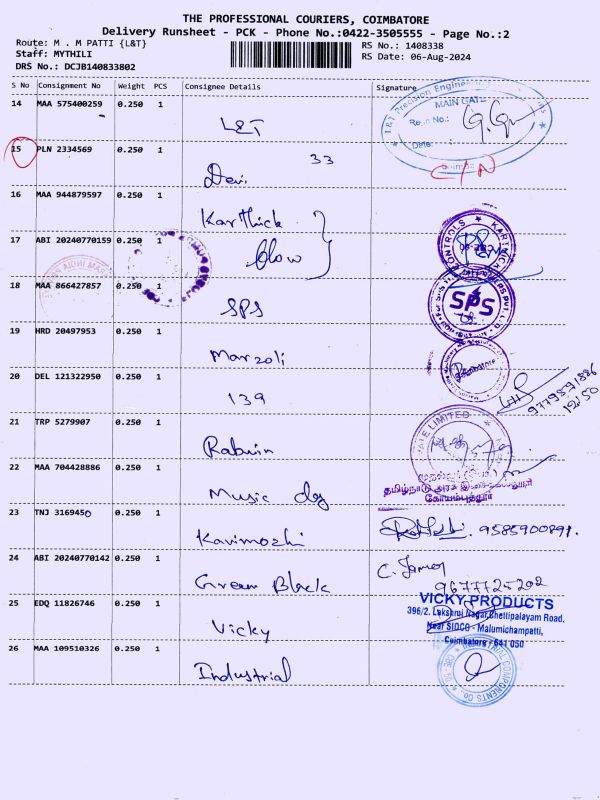 THE PROFESSIONAL COURIERS, COIMBATORE
Delivery Runsheet - PCK - Phone No.:0422-3505555 - Page No.:2
Route: M . M PATTI {L&T}
Staff: MYTHILI
DRS No.: DCJB140833802
RS No.: 1408338
RS Date: 06-Aug-2024
S No Consignment No Weight PCS Consignee Details Signature
14 MAA 575400259 0.250 1 L&T
L&T Precision Engine
MAIN GATE
Regn No.:
Date:
15 PLN 2334569 0.250 1 Devi 33
C/N
16 MAA 944879597 0.250 1 Karthick
17 ABI 20240770159 0.250 1 blow
CONTROLS
18 MAA 866427857 0.250 1 SPS
SPS
19 HRD 20497953 0.250 1 Marzoli
20 DEL 121322950 0.250 1 139
12/50
21 TRP 5279907 0.250 1
LIMITED
22 MAA 704428886 0.250 1 Music
கோயம்புத்தூர்
23 TNJ 3169450 0.250 1 Kavimozhi
9585900891.
24 ABI 20240770142 0.250 1 Green Black
C. James
9677725202
25 EDQ 11826746 0.250 1 Vicky
VICKY PRODUCTS
396/2, Lakshmi Nagar, Chettipalayam Road,
Near SIDCO - Malumichampatti,
Coimbatore - 641 050
26 MAA 109510326 0.250 1 Industrial